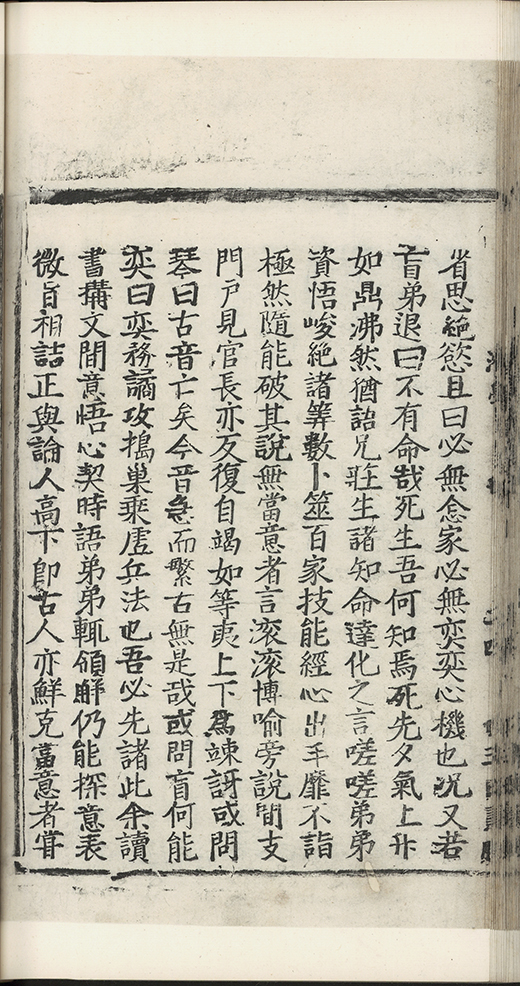 省思絶慾且曰必無念家必無奕奕心機也况又若
盲弟退曰不有命哉死生吾何知焉死先夕氣上升
如鼎沸然猶語兄莊生諸知命達化之言嗟嗟弟弟
資悟峻絶諸筭數卜筮百家技能經心出手靡不詣
極然隨能破其說無當意者言滚滚博喻旁說間支
門戶見官長亦反復自竭如等夷上下爲竦訝或問
琴曰古音亡矣今音急而繁古無是哉或問盲何能
奕曰奕務譎攻搗巢乘虛兵法也吾必先諸此余讀
書搆文間意悟心契時語弟弟輒領觧仍能探意表
微旨相詰正與論人高下卽古人亦鮮克當意者甞